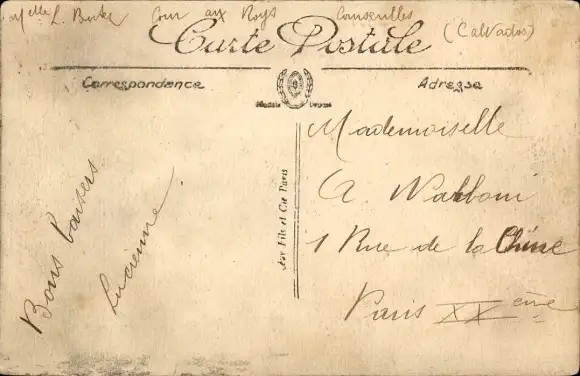 Melle L. Cour aux Roys Courseulles (Calvados)
Carte Postale
Correspondance
Adresse
Modèle Déposé
Bons baisers
Lucienne
Fils et Cie Paris
Mademoiselle
A Narboni
1 Rue de la Chine
Paris XX ème